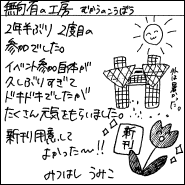 無有の工房 むうのこうぼう
2年半ぶり 2度目の
参加でした。
イベント参加自体が
久しぶりすぎて
ドキドキでしたが
たくさん元気をもらいました。
新刊用意して
よかったー!!
みつはし うみこ
新刊